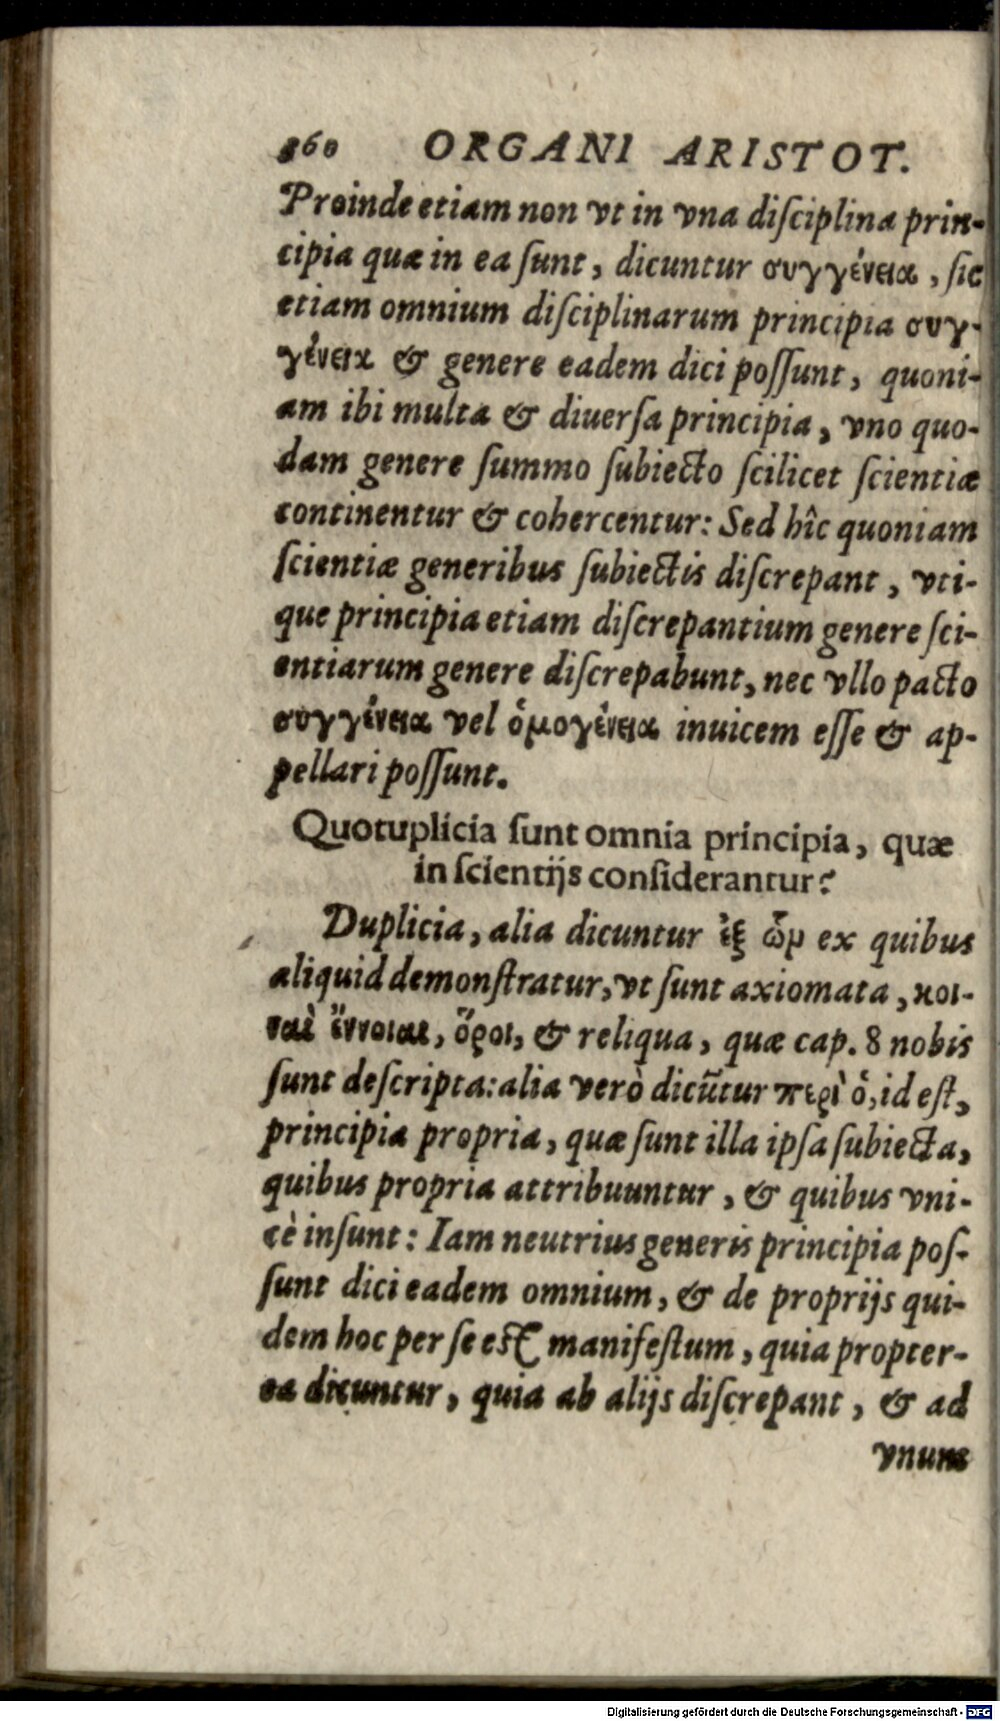 860 ORGANI ARISTOT.
Proinde etiam non vt in vna diſciplina prin-
cipia quæ in ea ſunt, dicuntur συγγένεια, ſic
etiam omnium diſciplinarum principia συγ-
γένεια & genere eadem dici poſſunt, quoni-
am ibi multa & diuerſa principia, vno quo-
dam genere ſummo ſubiecto ſcilicet ſcientiæ
continentur & cohercentur: Sed hîc quoniam
ſcientiæ generibus ſubiectis diſcrepant, vti-
que principia etiam diſcrepantium genere ſci-
entiarum genere diſcrepabunt, nec vllo pacto
συγγένεια vel ὁμογένεια inuicem eſſe & ap-
pellari poſſunt.
Quotuplicia ſunt omnia principia, quæ
in ſcientijs conſiderantur?
Duplicia, alia dicuntur ἐξ ὧν ex quibus
aliquid demonſtratur, vt ſunt axiomata, κοι-
ναὶ ἔννοιαι, ὅροι, & reliqua, quæ cap. 8 nobis
ſunt deſcripta: alia verò dicūtur περὶ ὅ, id eſt,
principia propria, quæ ſunt illa ipſa ſubiecta,
quibus propria attribuuntur, & quibus vni-
cè inſunt: Iam neutrius generis principia poſ-
ſunt dici eadem omnium, & de proprijs qui-
dem hoc per ſe eſt manifeſtum, quia propter-
ea dicuntur, quia ab alijs diſcrepant, & ad
vnum
Digitalisierung gefördert durch die Deutsche Forschungsgemeinschaft - DFG